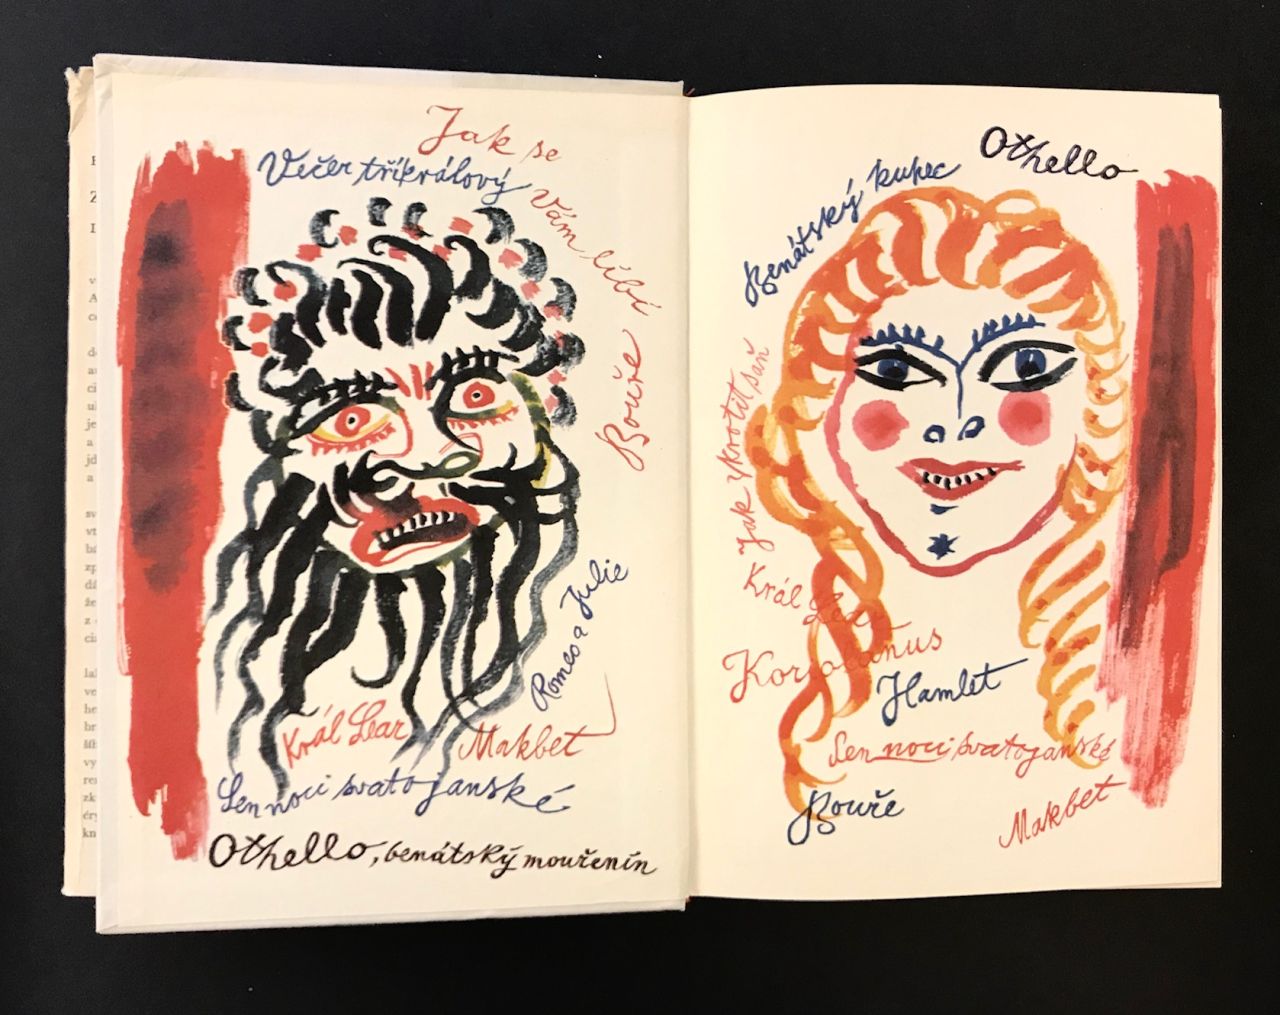 Jak se Vám líbí
Večer tříkrálový
Bouře
Romeo a Julie
Král Lear
Makbet
Sen noci svatojanské
Othello, benátský mouřenín
Othello
Benátský kupec
Jak zkrotit saň
Král Lear
Koriolanus
Hamlet
Sen noci svatojanské
Bouře
Makbet